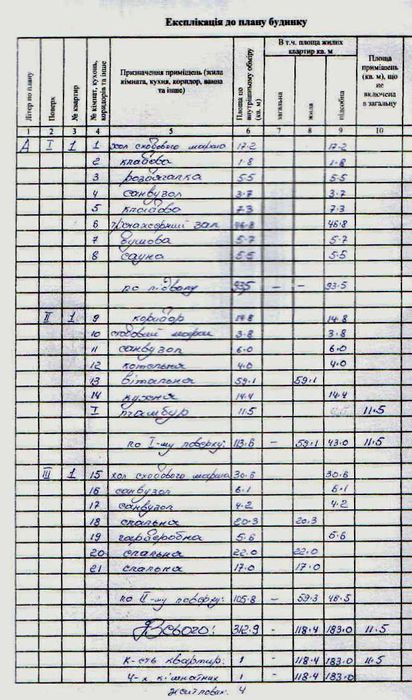 Експлікація до плану будинку
Літер по плану | Поверх | № квартир | № кімнат, кухонь, коридорів та інше | Призначення приміщень (жила кімната, кухня, коридор, ванна та інше) | Площа по внутрішньому обміру (кв. м) | В т.ч. площа жилих квартир кв. м | Площа приміщень (кв. м), що не включена в загальну
загальна | жила | підсобна
1 2 3 4 5 6 7 8 9 10
А I 1 1 хол сходового марша 17.2 17.2
2 кладова 1.8 1.8
3 роздягалка 5.5 5.5
4 санвузол 3.7 3.7
5 кладова 7.3 7.3
6 тренажерний зал 46.8 46.8
7 душова 5.7 5.7
8 сауна 5.5 5.5
по підвалу 93.5 - - 93.5
II 1 9 коридор 14.8 14.8
10 сходовий марш 3.8 3.8
11 санвузол 6.0 6.0
12 котельна 4.0 4.0
13 вітальна 59.1 59.1
14 кухня 14.4 14.4
I тамбур 11.5 11.5
по I-му поверху: 113.6 - 59.1 43.0 11.5
III 1 15 хол сходового марша 30.6 30.6
16 санвузол 6.1 6.1
17 санвузол 4.2 4.2
18 спальня 20.3 20.3
19 гардеробна 5.6 5.6
20 спальня 22.0 22.0
21 спальня 17.0 17.0
по II-му поверху: 105.8 - 59.3 46.5
Всього: 312.9 - 118.4 183.0 11.5
к-сть квартир: 1 - 118.4 183.0 11.5
4-х кімнатних 1 - 118.4 183.0
житлових 4